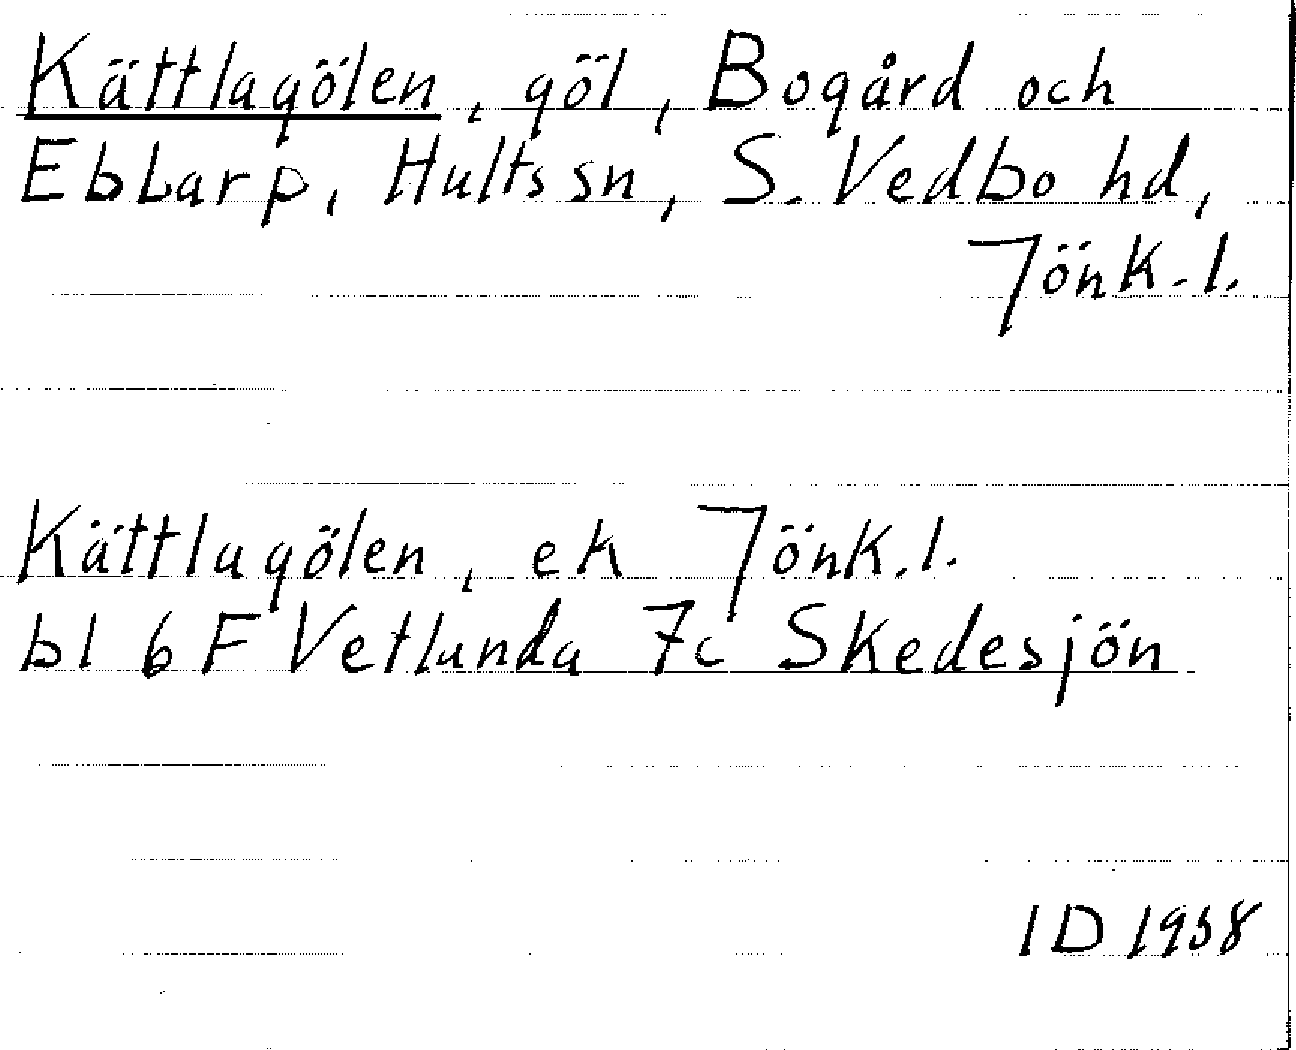 Kättlagölen, göl, Bogård och
Ebbarp, Hults sn, S. Vedbo hd,
Jönk.l.
Kättlagölen, ek Jönk.l.
bl 6 F Vetlanda 7c Skedesjön
ID 1958